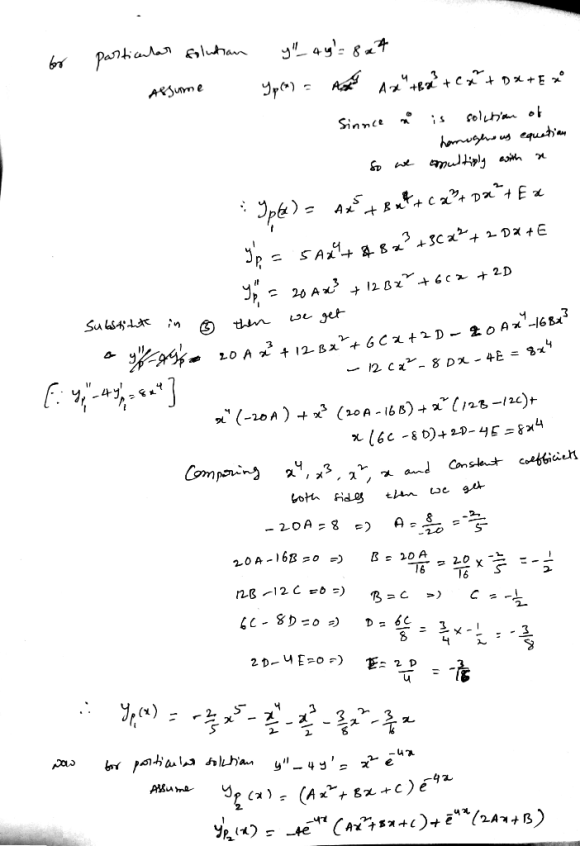 for particular solution y'' - 4y' = 8x⁴
Assume y_p(x) = Ax⁴ + Bx³ + Cx² + Dx + E x⁰
Sinnce x⁰ is solution of
homogeneous equation
so we multiply with x
∴ y_p₁(x) = Ax⁵ + Bx⁴ + Cx³ + Dx² + Ex
y'_p₁ = 5Ax⁴ + 4Bx³ + 3Cx² + 2Dx + E
y''_p₁ = 20Ax³ + 12Bx² + 6Cx + 2D
Substitute in ③ then we get
20Ax³ + 12Bx² + 6Cx + 2D - 20Ax⁴ - 16Bx³
- 12Cx² - 8Dx - 4E = 8x⁴
[∵ y''_p₁ - 4y'_p₁ = 8x⁴]
x⁴(-20A) + x³(20A - 16B) + x²(12B - 12C) +
x(6C - 8D) + 2D - 4E = 8x⁴
Comparing x⁴, x³, x², x and constant coefficients
both sides then we get
-20A = 8 => A = 8/-20 = -2/5
20A - 16B = 0 => B = 20A/16 = 20/16 × -2/5 = -1/2
12B - 12C = 0 => B = C => C = -1/2
6C - 8D = 0 => D = 6C/8 = 3/4 × -1/2 = -3/8
2D - 4E = 0 => E = 2D/4 = -3/16
∴ y_p₁(x) = -2/5 x⁵ - x⁴/2 - x³/2 - 3/8 x² - 3/16 x
Now for particular solution y'' - 4y' = x² e^(-4x)
Assume y_p₂(x) = (Ax² + Bx + C) e^(-4x)
y'_p₂(x) = -4e^(-4x) (Ax² + Bx + C) + e^(-4x) (2Ax + B)